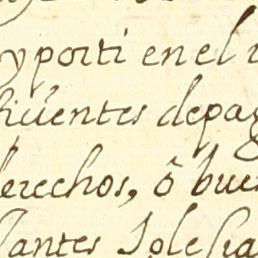 y porti en el
vientes de pag
derechos, ô bue
santes Iglesia